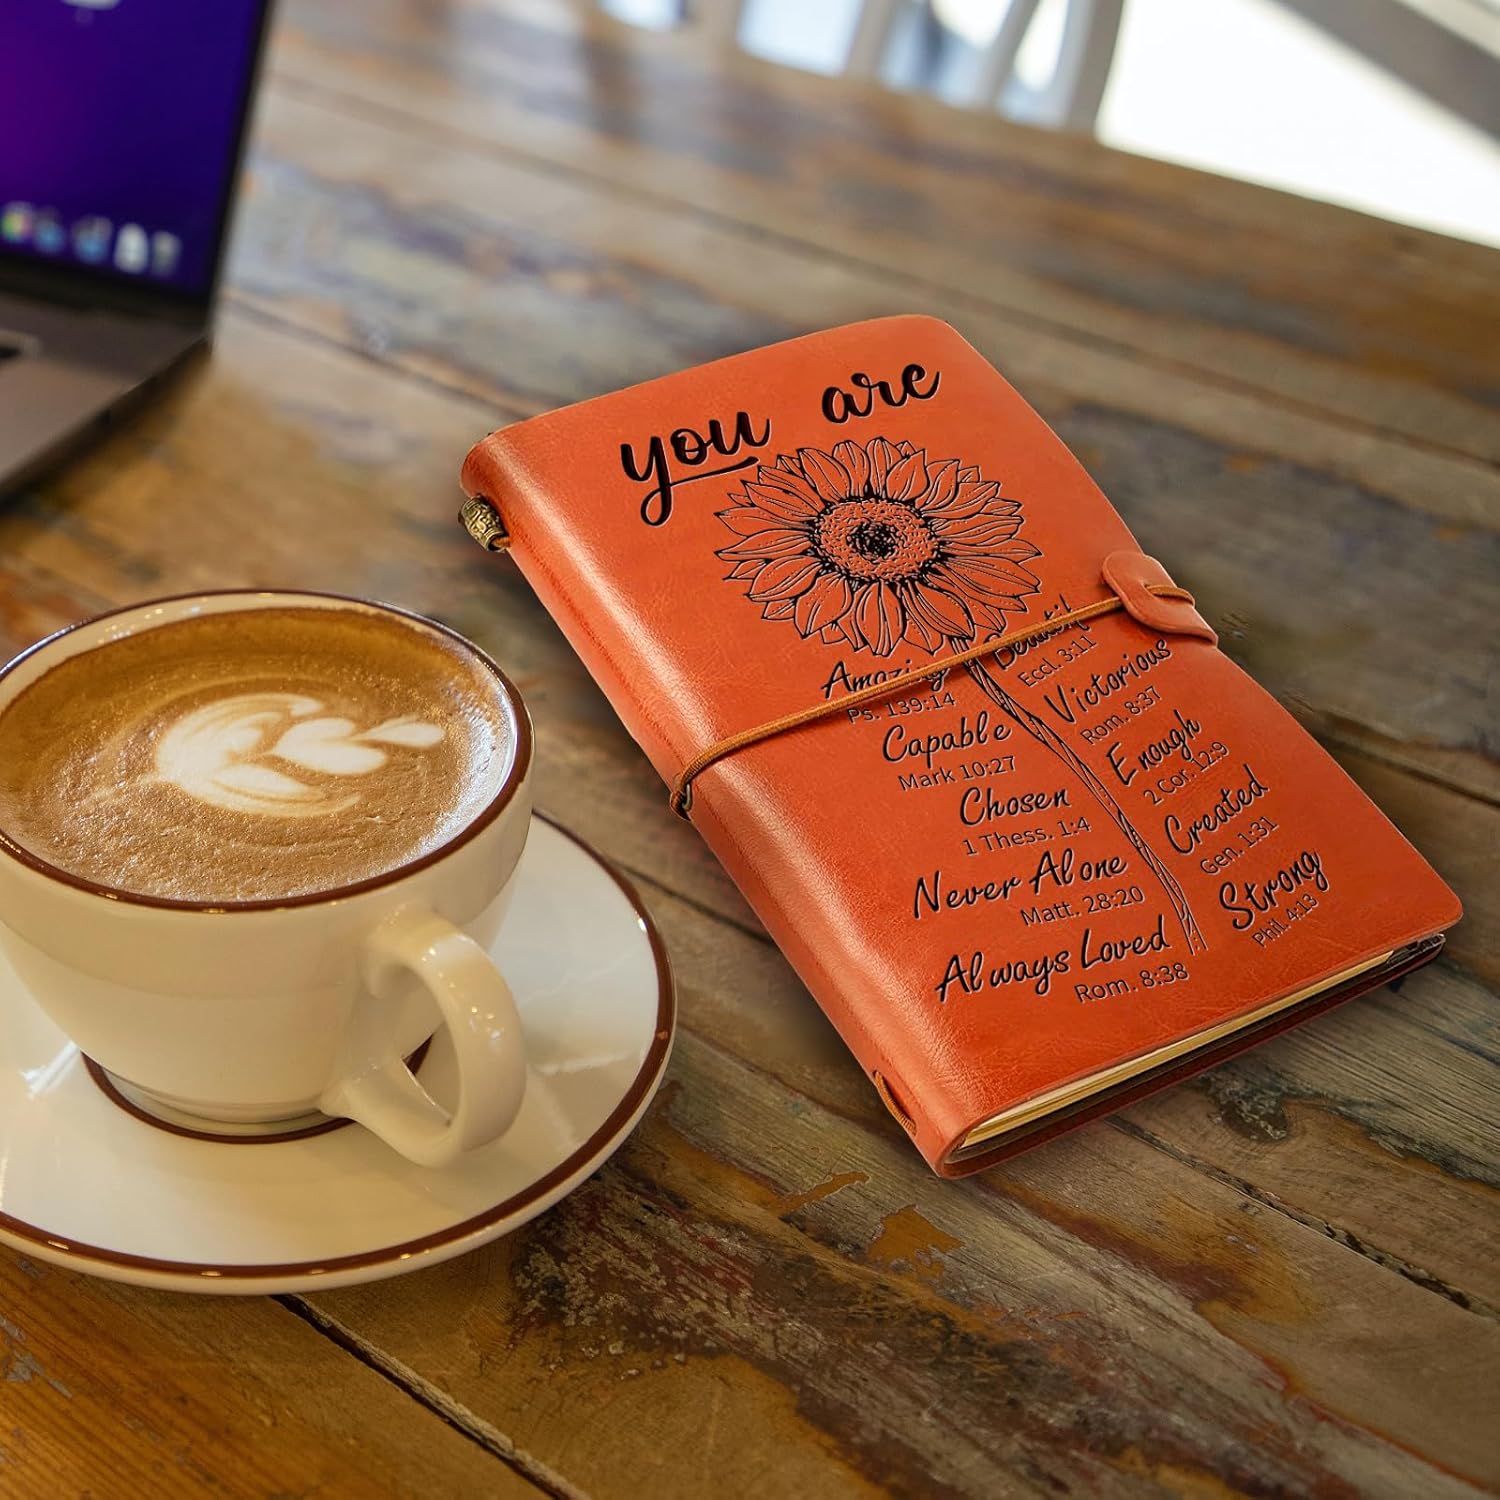 you are
Amazing
Ps. 139:14
Capable
Mark 10:27
Chosen
1 Thess. 1:4
Never Alone
Matt. 28:20
Always Loved
Rom. 8:38
Beautiful
Eccl. 3:11
Victorious
Rom. 8:37
Enough
2 Cor. 12:9
Created
Gen. 1:31
Strong
Phil. 4:13